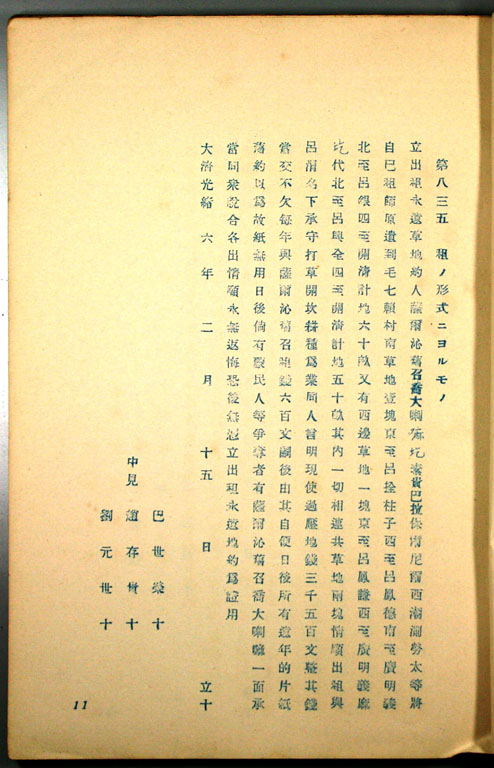 第八三五　租ノ形式ニヨルモノ
立出租永遠草地約人薩爾沁舊召喬大喇嘛圪素貴巴拉保南尼爾西湖洞勞太等將
自己祖師原遺到毛七賴村南草地壹塊東至呂拴柱子西至呂鳳德南至廣明義
北至呂銀四至開清計地六十畝又有西邊草地一塊東至呂鳳謙西至廣明義麻
圪代北至呂興全四至開清計地五十畝其內一切相連共草地兩塊情願出租與
呂渭名下承守打草開坎耕種爲業同人言明現使過壓地錢三千五百文整其錢
當交不欠每年與薩爾沁舊召租錢六百文嗣後由其自便日後所有遠年的片紙
舊約以爲故紙無用日後倘有蒙民人等爭奪者有薩爾沁舊召喬大喇嘛一面承
當同衆說合各出情願永無返悔恐後無憑立出租永遠地約爲證用
大清光緒六年二月十五日　立十
巴世榮十
中見　趙存貴十
劉元世十
11